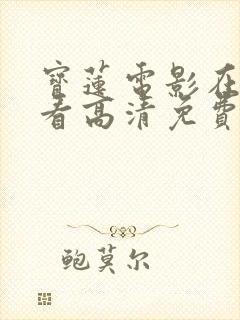 寶蓮電影在
看高清免費
鲍莫尔